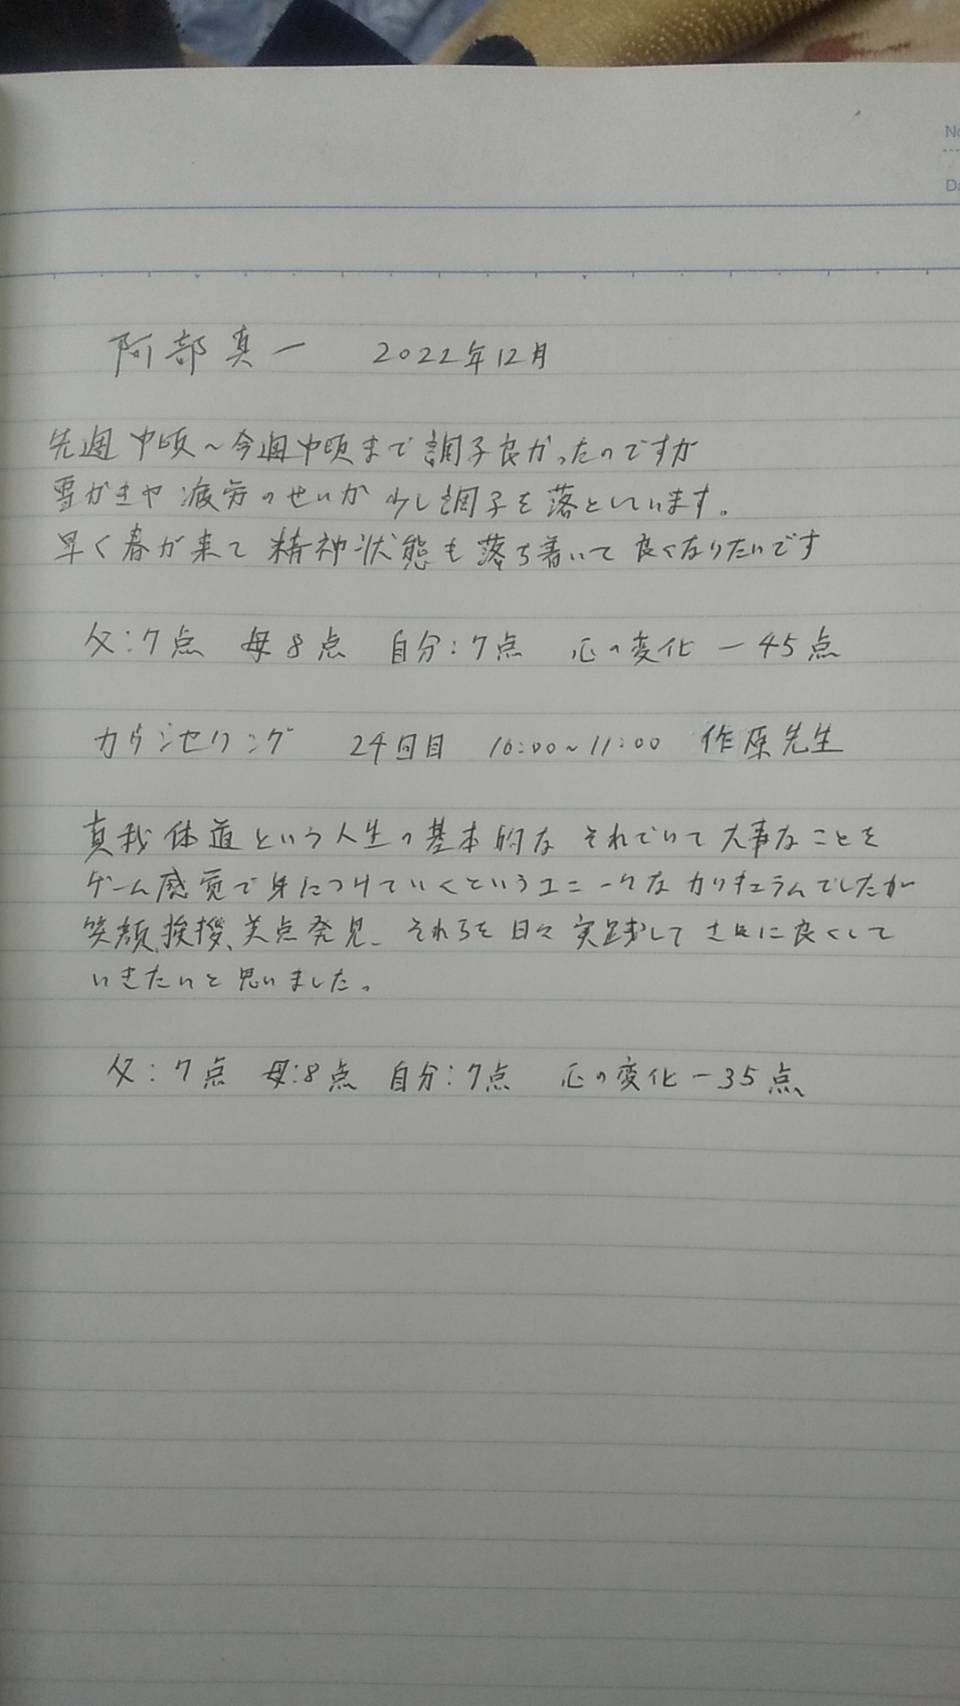 No
Da
阿部真一 2022年12月
先週中頃～今週中頃まで調子良かったのですが
雪かきや疲労のせいか少し調子を落としています。
早く春が来て精神状態も落ち着いて良くなりたいです
父:7点 母8点 自分:7点 心の変化-45点
カウンセリング 24回目 10:00～11:00 作原先生
真我体道という人生の基本的なそれでいて大事なことを
ゲーム感覚で身につけていくというユニークなカリキュラムでしたが
笑顔、挨拶、美点発見、それらを日々実践してさらに良くして
いきたいと思いました。
父:7点 母:8点 自分:7点 心の変化-35点